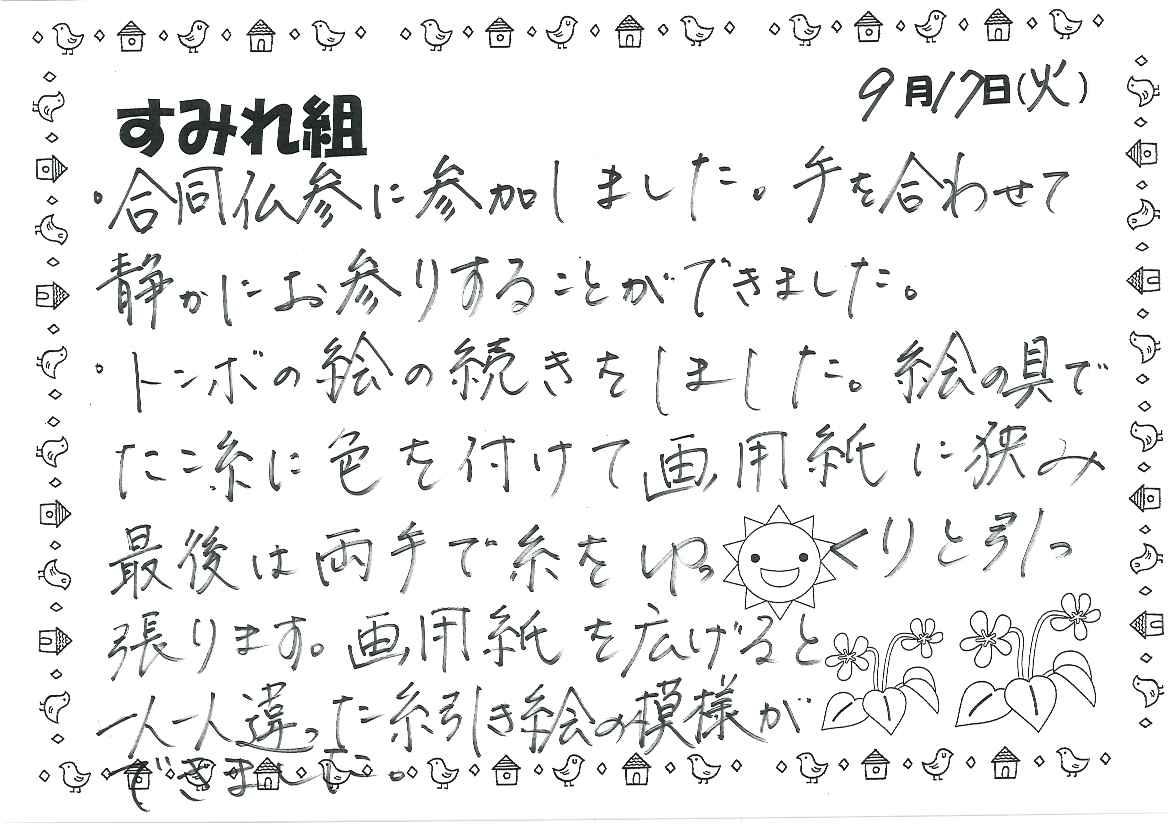 9月17日(火)
すみれ組
・合同仏参に参加しました。手を合わせて
静かにお参りすることができました。
・トンボの絵の続きをしました。絵の具で
たこ糸に色を付けて画用紙に狭み
最後は両手で糸をゆっくりと引っ
張ります。画用紙を広げると
一人一人違った糸引き絵の模様が
できました。